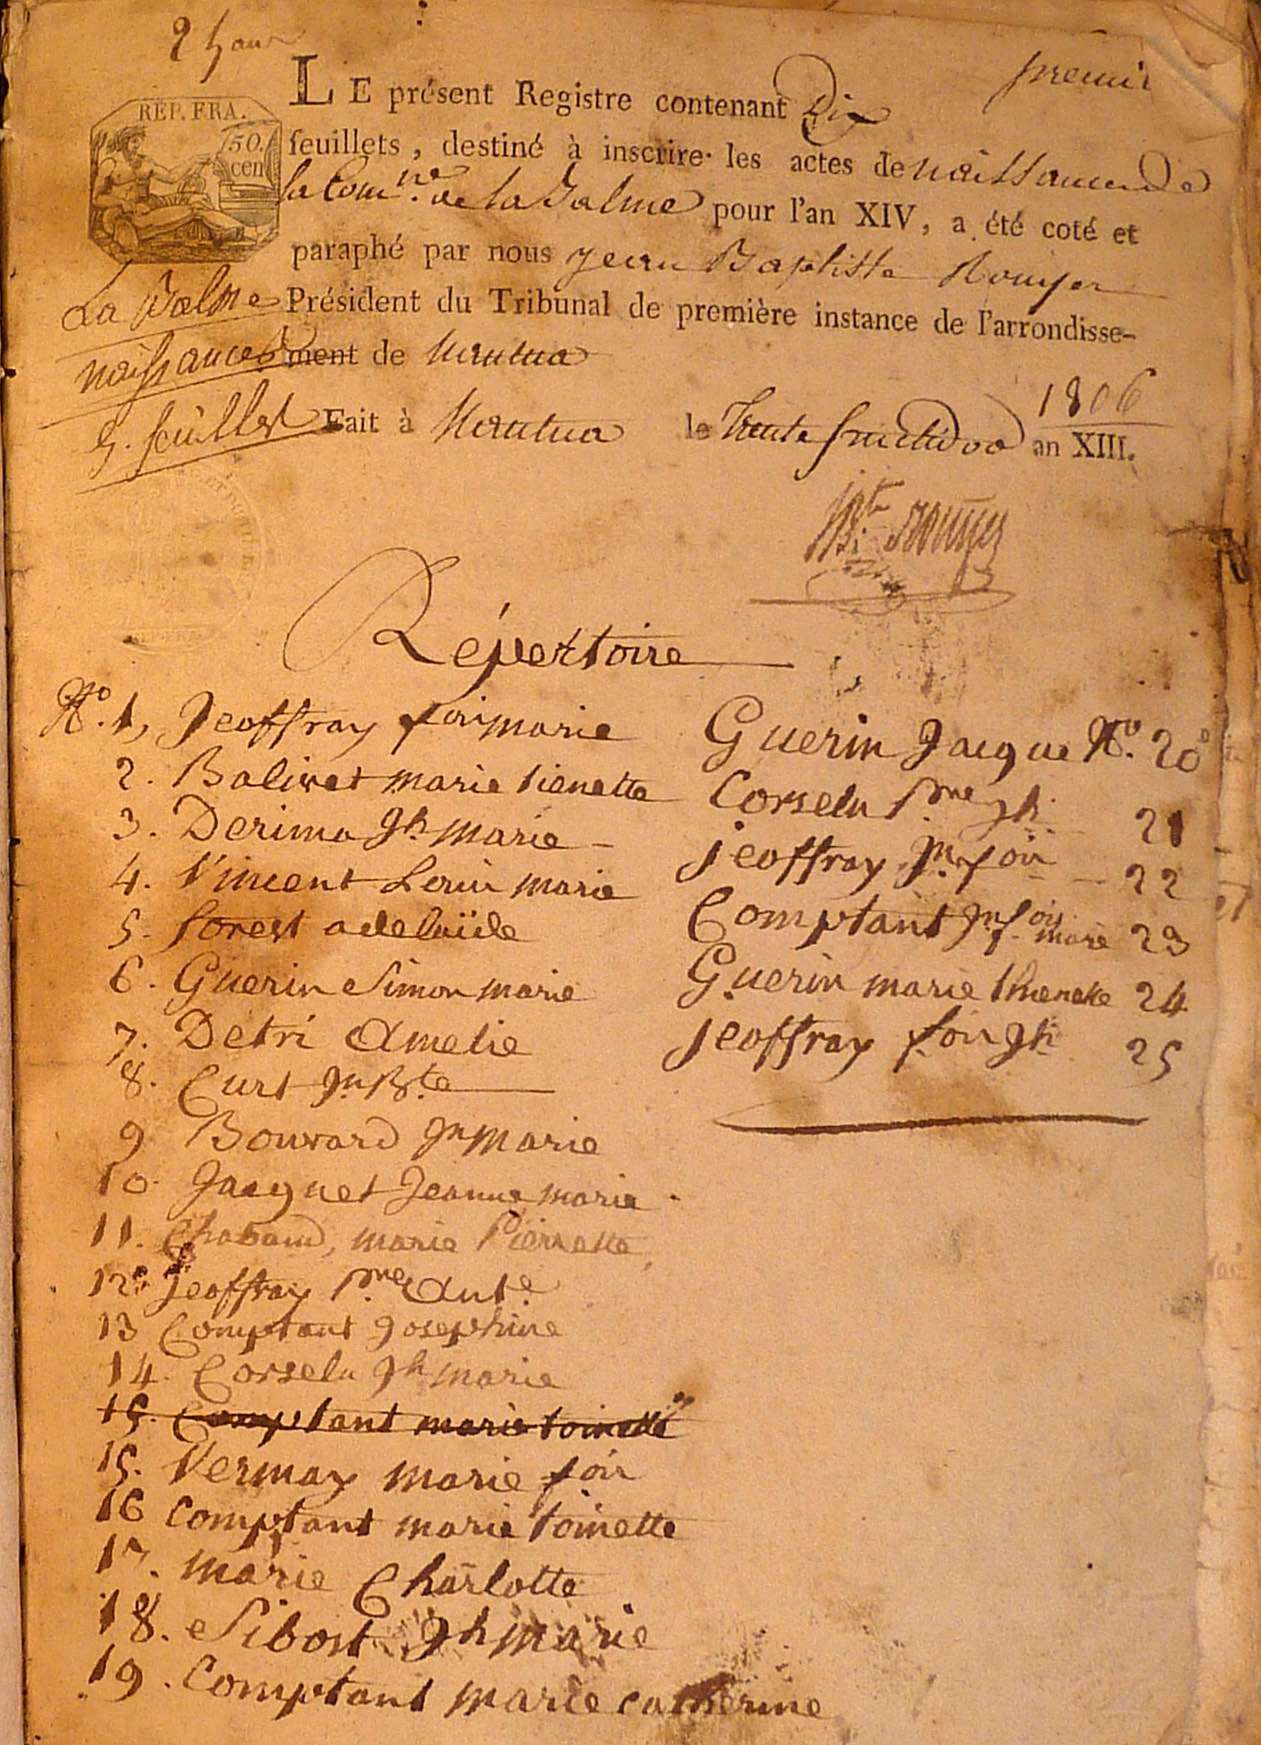 premier
RÉP. FRA.
50.
cen
LE présent Registre contenant Dix
feuillets, destiné à inscrire les actes de naissances de
la Comne. de la Balme pour l'an XIV, a été coté et
paraphé par nous jean Baptiste Rouyer
Président du Tribunal de première instance de l'arrondisse-
ment de Nantua
La Balme
naissances
5. feuillets
1806
Fait à Nantua le Trente fructidor an XIII.
Jn Bte Rouyer
Répertoire
No. 1, Jeoffray foismarie
2. Balivet marie tienette
3. Derima Jh marie
4. Vincent Louis marie
5. forest adelaïde
6. Guerin Simon marie
7. Detri Amelie
8. Curt Jn Bte
9 Bouvard Jn marie
10. Jacquet Jeanne marie
11. Chabaud, marie Pierrette
12. Jeoffray Pre. Ante
13 Comptant Josephine
14. Corselu Jh marie
15. Comptant marie toinette
15. Vermay marie fois
16 Comptant marie toinette
17. marie Charlotte
18. Sibost Jh marie
19. Comptant marie catherine
Guerin Jacque No. 20
Corselu Pre. Jh. 21
jeoffray Jn fois 22
Comptant Jn fois marie 23
Guerin marie thienette 24
jeoffray fois Jh 25